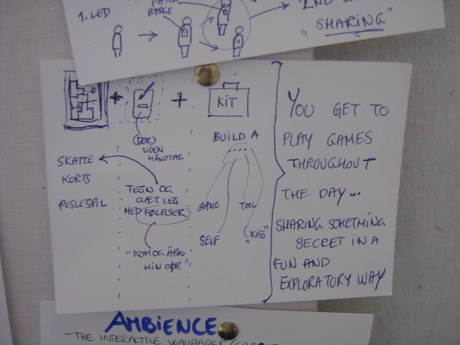 1. LED
BADGE
"SHARING"
+
+
KIT
(DØR)
UDEN
HÅNDTAG
BUILD A
SKATTE
KORTS
PUSLESPIL
TEGN OG
GÆT LEG
MED FØLELSER
GAME
TOOL
SELF
"KISS"
"KOM OG ÅBN
MIN DØR"
YOU GET TO
PLAY GAMES
THROUGHOUT
THE DAY...
SHARING SOMETHING
SECRET IN A
FUN AND
EXPLORATORY WAY
AMBIENCE
- THE INTERACTIVE WALLPAPER